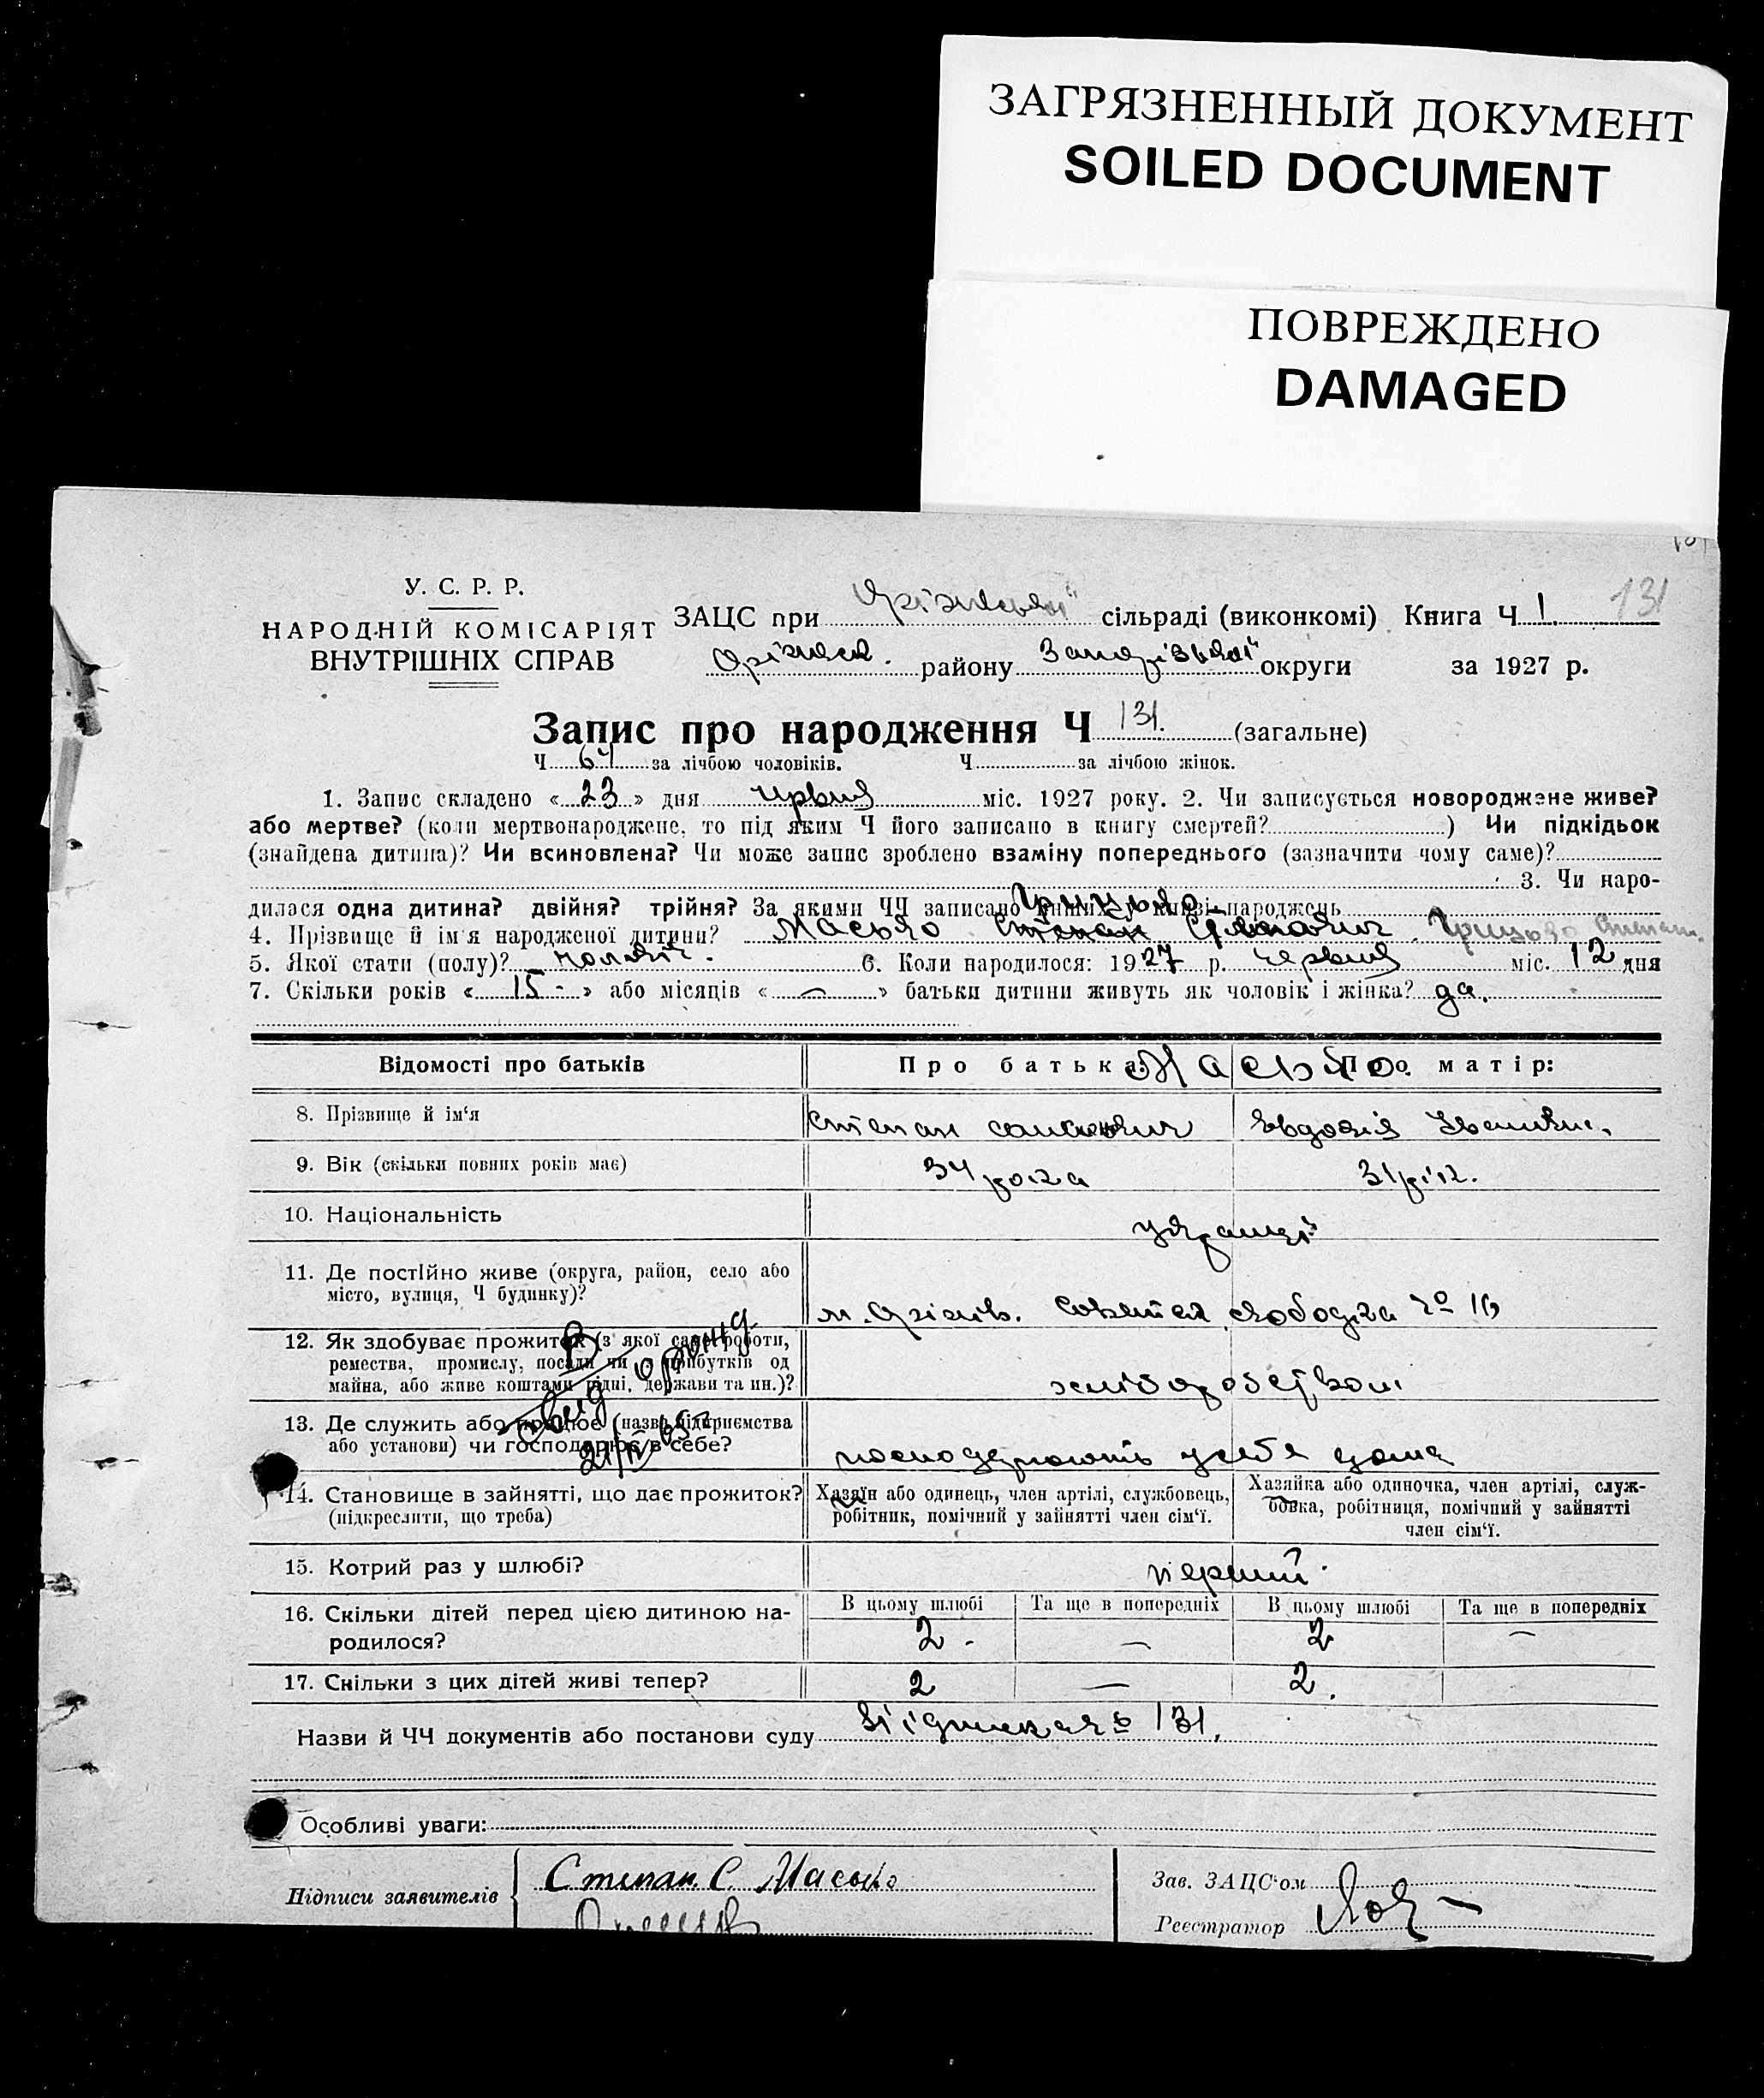 ЗАГРЯЗНЕННЫЙ ДОКУМЕНТ
SOILED DOCUMENT
ПОВРЕЖДЕНО
DAMAGED
У. С. Р. Р.
НАРОДНІЙ КОМІСАРІЯТ
ВНУТРІШНІХ СПРАВ
131
ЗАЦС при Оріхівській сільраді (виконкомі) Книга Ч 1
Оріхівськ. району Запорізької округи за 1927 р.
Запис про народження Ч 131. (загальне)
Ч 64 за лічбою чоловіків. Ч за лічбою жінок.
1. Запис складено « 23 » дня червня міс. 1927 року. 2. Чи записується новороджене живе?
або мертве? (коли мертвонароджене, то під яким Ч його записано в книгу смертей? ) Чи підкідьок
(знайдена дитина)? Чи всиновлена? Чи може запис зроблено взаміну попереднього (зазначити чому саме)?
3. Чи наро-
дилася одна дитина? двійня? трійня? За якими ЧЧ записано инших у книзі народжень
Грицько
4. Прізвище й ім'я народженої дитини? Масько Степан Степанович. Грицько Степан.
5. Якої стати (полу)? чоловіч. 6. Коли народилося: 1927 р. червня міс. 12 дня
7. Скільки років « 15 - » або місяців « — » батьки дитини живуть як чоловік і жінка? да.
Відомості про батьків Про батька Масько. Про матір:
8. Прізвище й ім'я Степан Семенович Явдокія Іванівн.
9. Вік (скільки повних років має) 34 рока 31 рік.
10. Національність українці
11. Де постійно живе (округа, район, село або
місто, вулиця, Ч будинку)? м. Оріхів. слободка № 16
12. Як здобуває прожиток (з якої саме роботи,
ремества, промислу, посади чи з прибутків од
майна, або живе коштами рідні, держави та ин.)? хліборобством
13. Де служить або працює (назва підприємства
або установи) чи господарює в себе? господарюють у себе дома
21/IV 65
14. Становище в зайнятті, що дає прожиток?
(підкреслити, що треба)
Хазяїн або одинець, член артілі, службовець,
робітник, помічний у зайнятті член сім'ї.
Хазяйка або одиночка, член артілі, служ-
бовка, робітниця, помічний у зайнятті
член сім'ї.
15. Котрий раз у шлюбі? перший.
16. Скільки дітей перед цією дитиною на-
родилося?
В цьому шлюбі Та ще в попередніх В цьому шлюбі Та ще в попередніх
2 - — 2 —
17. Скільки з цих дітей живі тепер? 2 — 2.
Назви й ЧЧ документів або постанови суду 131.
Особливі уваги:
Підписи заявителів Степан. С. Масько
Зав. ЗАЦС'ом
Реєстратор